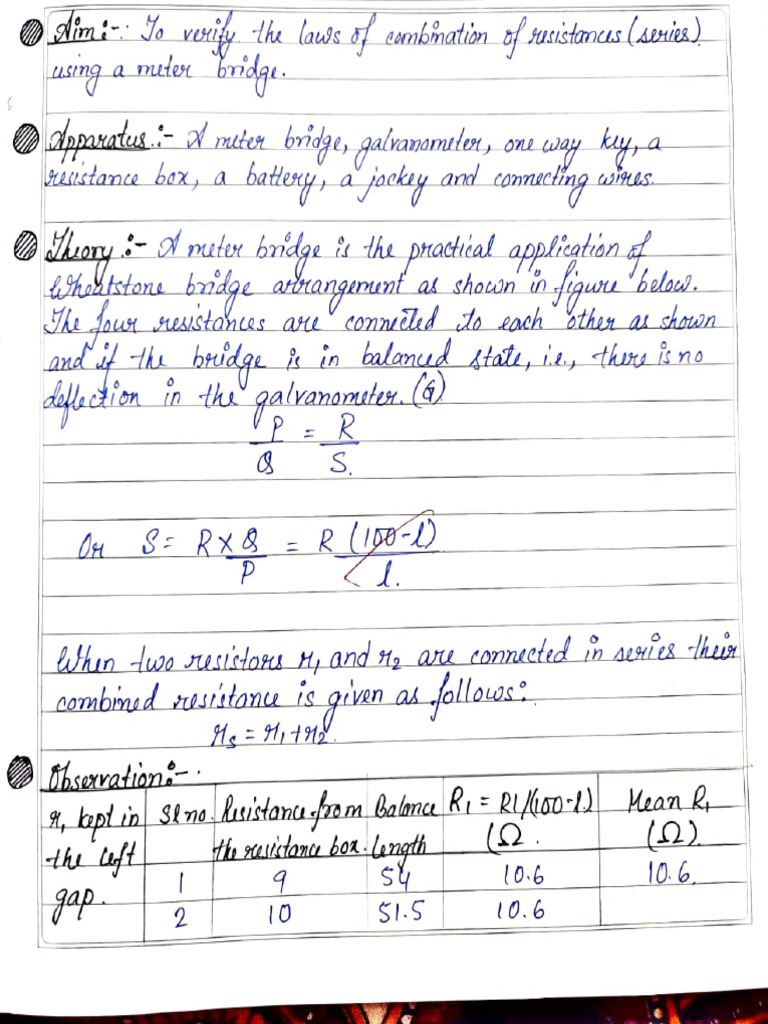 Aim:-: To verify the laws of combination of resistances (series)
using a meter bridge.
Apparatus:- A meter bridge, galvanometer, one way key, a
resistance box, a battery, a jockey and connecting wires.
Theory:- A meter bridge is the practical application of
Wheatstone bridge arrangement as shown in figure below.
The four resistances are connected to each other as shown
and if the bridge is in balanced state, i.e., there is no
deflection in the galvanometer. (G)
P/Q = R/S.
Or S = R x Q/P = R (100-l)/l.
When two resistors r1 and r2 are connected in series their
combined resistance is given as follows:
rs = r1+r2.
Observation:-.
r1 kept in the left gap. Sl no. Resistance from the resistance box. Balance length R1 = Rl/(100-l) (Ω. Mean R1 (Ω).
1 9 54 10.6 10.6.
2 10 51.5 10.6